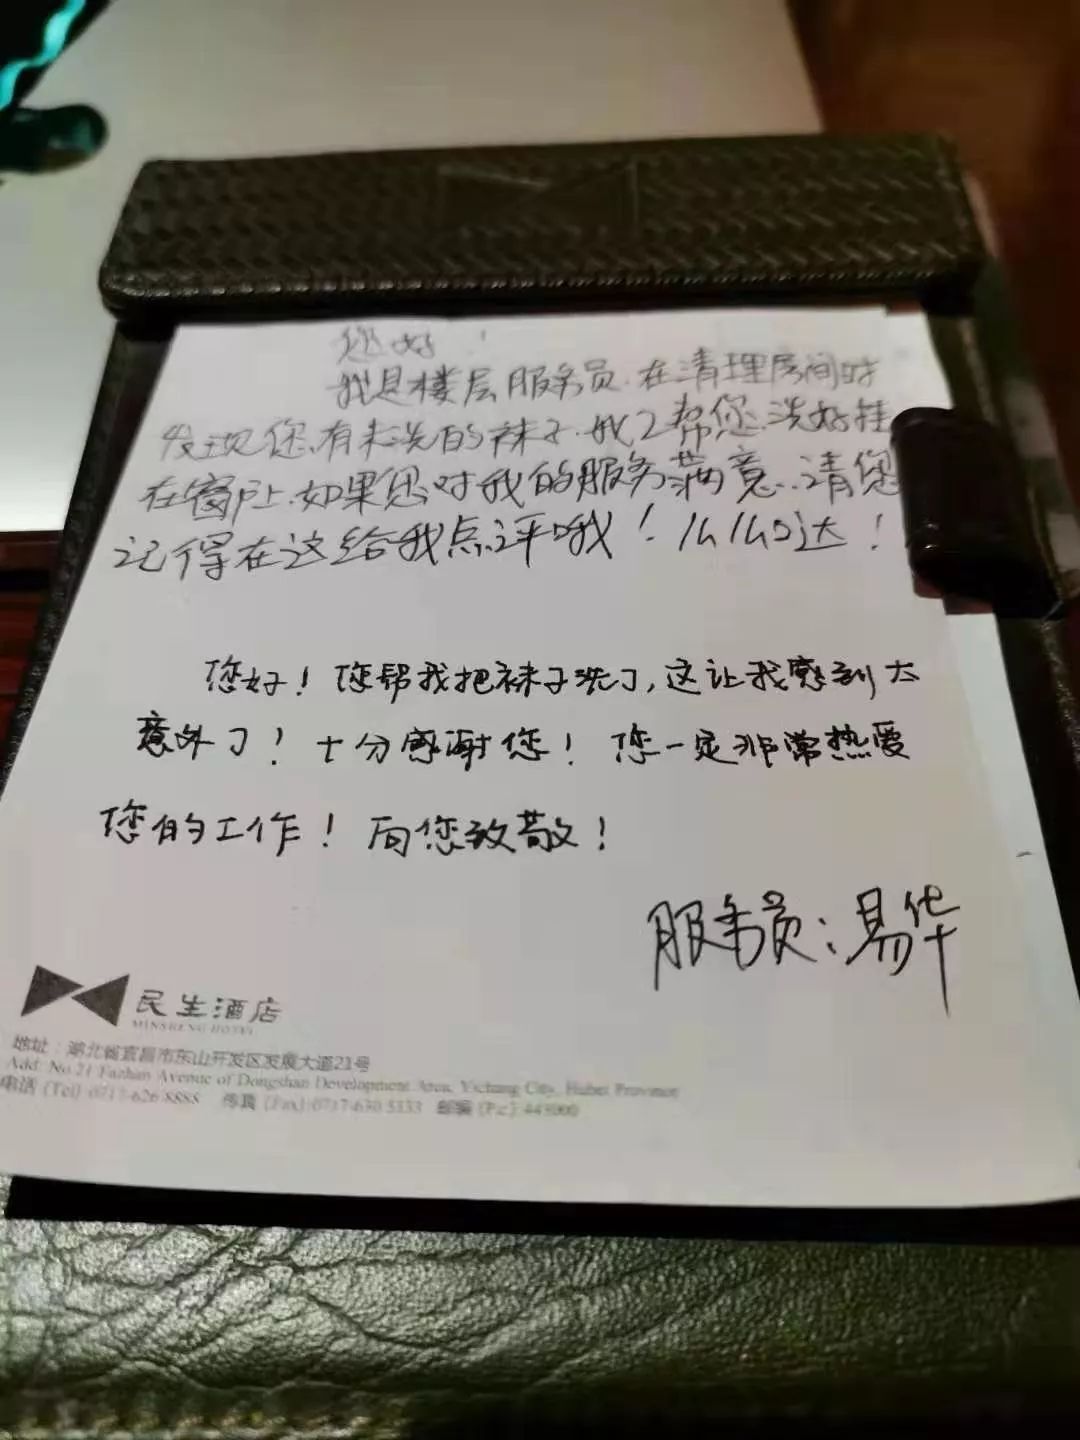 您好！
我是楼层服务员.在清理房间时
发现您有未洗的袜子.我已帮您洗好挂
在窗户上.如果您对我的服务满意.请您
记得在这给我点评哦！么么哒！
您好！您帮我把袜子洗了，这让我感到太
意外了！十分感谢您！您一定非常热爱
您的工作！向您致敬！
服务员：易华
民生酒店
MINSHENG HOTEL
地址：湖北省宜昌市东山开发区发展大道21号
Add: No.21 Fazhan Avenue of Dongshan Development Area, Yichang City, Hubei Province
电话 (Tel) 0717-626 8888 传真 (Fax):0717-630 5333 邮编 (P.c): 443000